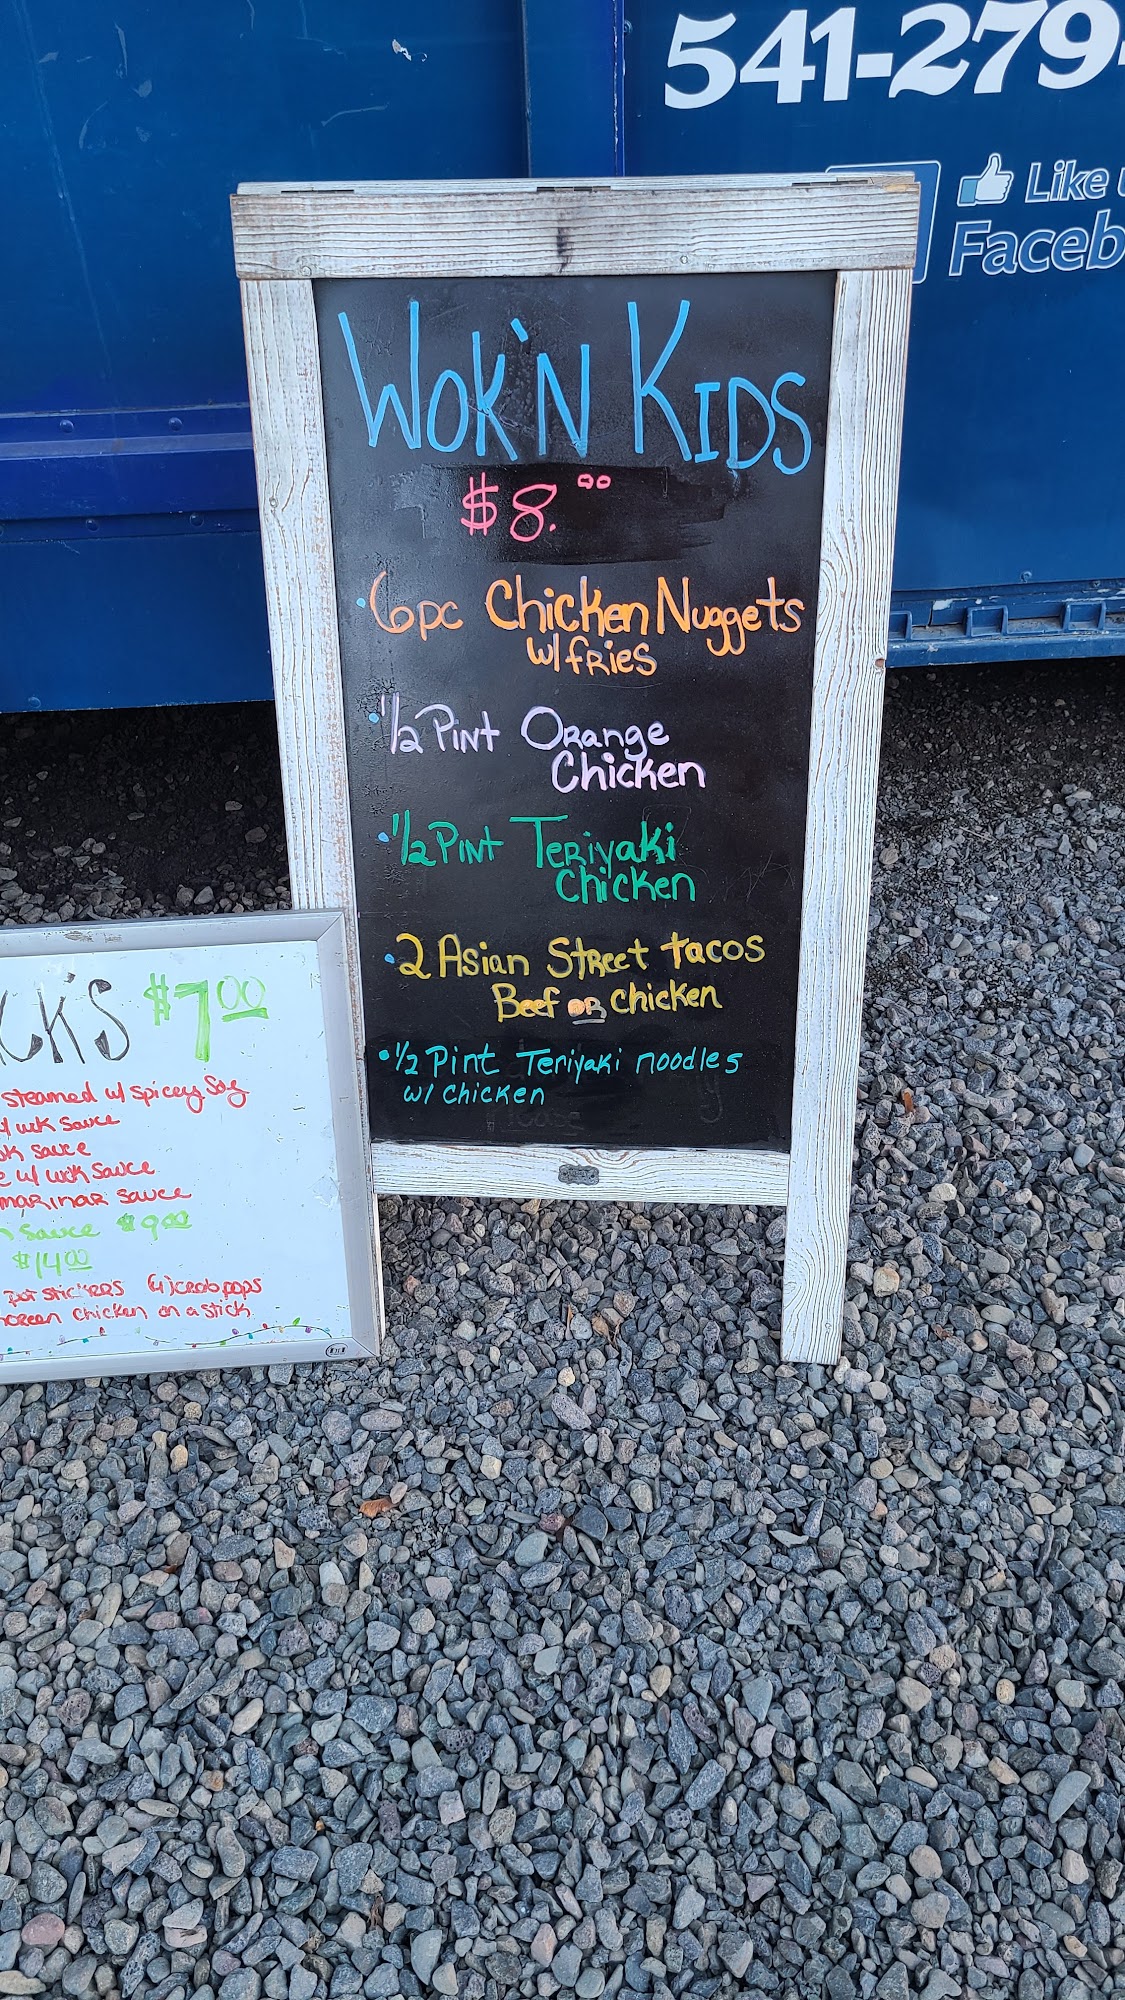 541-279-
Like
Faceb
WOK'N KIDS
$8.00
• 6pc Chicken Nuggets
w/ fries
• 1/2 Pint Orange
Chicken
• 1/2 Pint Teriyaki
Chicken
• 2 Asian Street tacos
Beef or chicken
• 1/2 Pint Teriyaki noodles
w/ chicken
CK'S $7.00
steamed w/ spicey Soy
wk sauce
sauce
w/ wok sauce
marinar sauce
Sauce $9.00
$14.00
pot stickers (4) crab pops
chicken on a stick